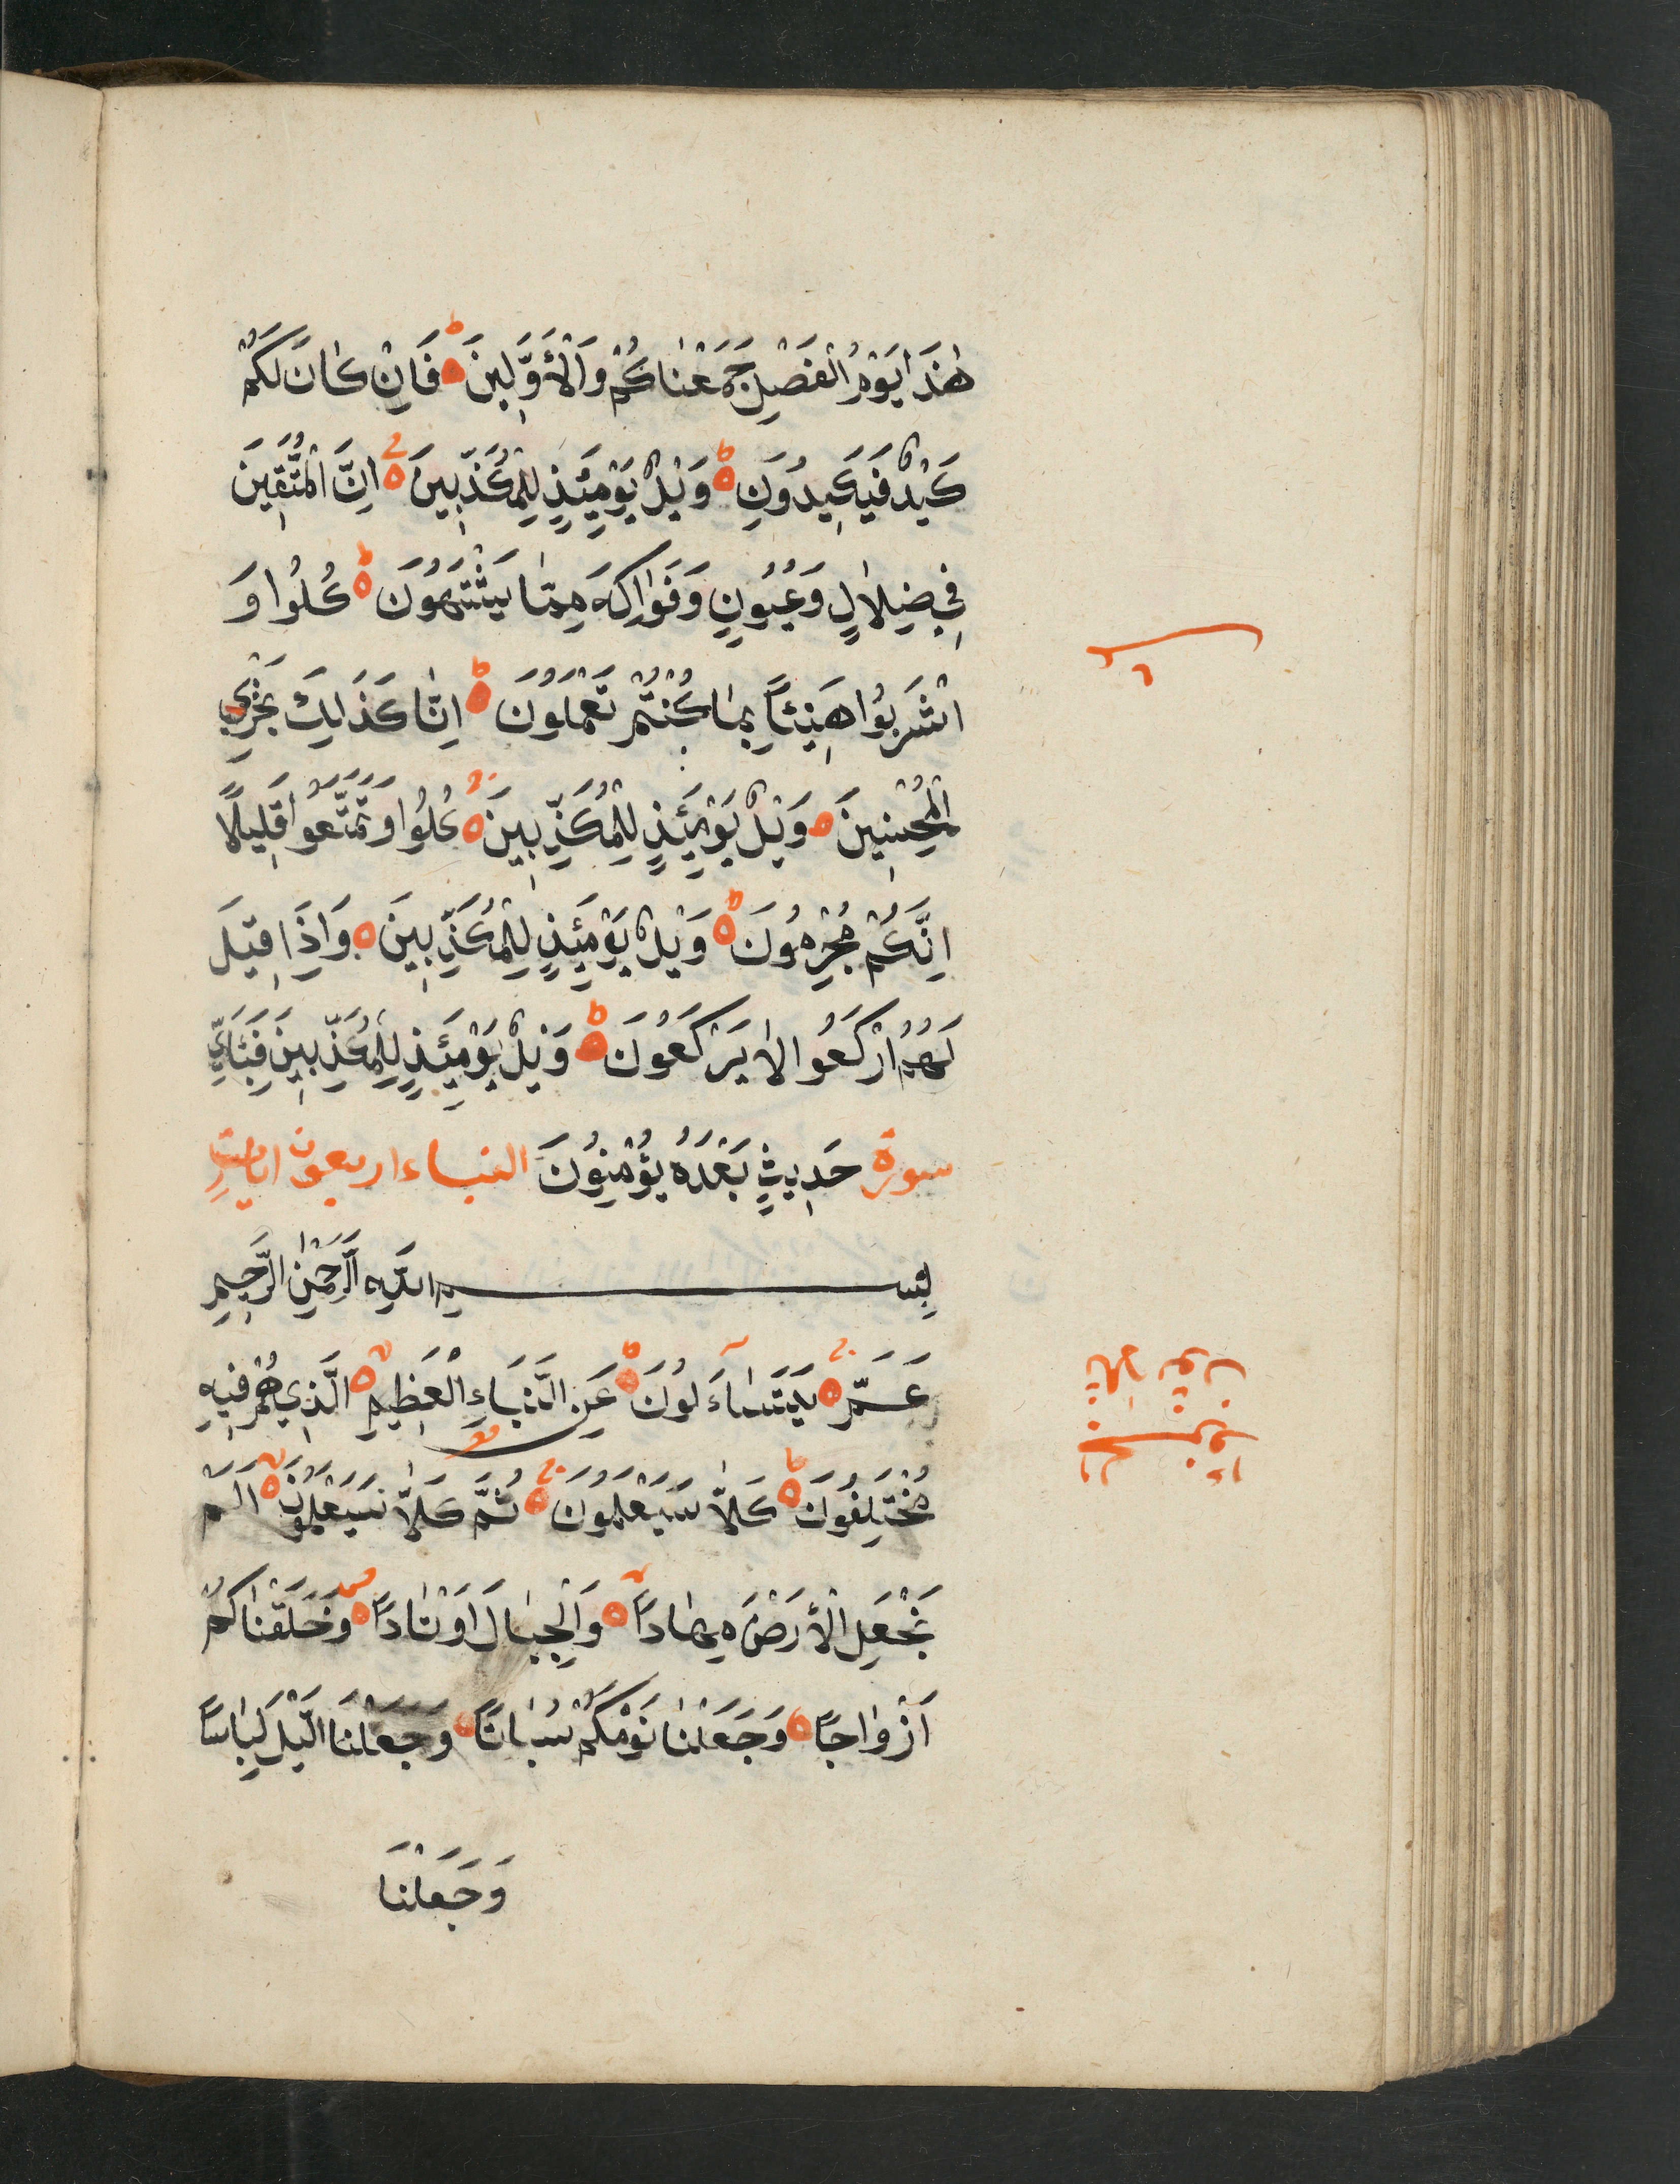 هٰذَا يَوْمُ الْفَصْلِ جَمَعْنَاكُمْ وَالْأَوَّلِينَ فَاِنْ كَانَ لَكُمْ
كَيْدٌ فَيَكِيدُونِ وَيْلٌ يَوْمَئِذٍ لِلْمُكَذِّبِينَ اِنَّ الْمُتَّقِينَ
فِي ضِلَالٍ وَعُيُونٍ وَفَوَاكِهَ مِمَّا يَشْتَهُونَ كُلُوا وَ
اشْرَبُوا هَنِيئًا بِمَا كُنْتُمْ تَعْمَلُونَ اِنَّا كَذَلِكَ نَجْزِي
الْمُحْسِنِينَ وَيْلٌ يَوْمَئِذٍ لِلْمُكَذِّبِينَ كُلُوا وَتَمَتَّعُوا قَلِيلًا
اِنَّكُمْ مُجْرِمُونَ وَيْلٌ يَوْمَئِذٍ لِلْمُكَذِّبِينَ وَاِذَا قِيلَ
لَهُمُ ارْكَعُوا لَا يَرْكَعُونَ وَيْلٌ يَوْمَئِذٍ لِلْمُكَذِّبِينَ فَبِئَايِّ
سورة حَدِيثٍ بَعْدَهُ يُؤْمِنُونَ النباء اربعون ايات
بِسْمِ اللّٰهِ الرَّحْمٰنِ الرَّحِيمِ
عَمَّ يَتَسَاءَلُونَ عَنِ النَّبَاءِ الْعَظِيمِ الَّذِي هُمْ فِيهِ
مُخْتَلِفُونَ كَلَّا سَيَعْلَمُونَ ثُمَّ كَلَّا سَيَعْلَمُونَ اَلَمْ
نَجْعَلِ الْأَرْضَ مِهَادًا وَالْجِبَالَ اَوْتَادًا وَخَلَقْنَاكُمْ
اَزْوَاجًا وَجَعَلْنَا نَوْمَكُمْ سُبَاتًا وَجَعَلْنَا الَّيْلَ لِبَاسًا
وَجَعَلْنَا